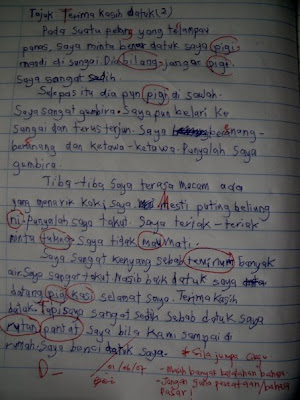 Tajuk: Terima kasih datuk (2)
Pada suatu petang yang terlampau
panas, saya minta datuk saya pigi
mandi di sungai. Dia bilang jangan pigi.
Saya sangat sedih
Selepas itu dia pun pigi di sawah.
Saya sangat gumbira. Saya pun belari ke
sungai dan terus terjun. Saya benang-
benang dan ketawa-ketawa. Punyalah saya
gumbira.
Tiba-tiba saya terasa macam ada
yang menarik kaki saya. Mesti puting beliung
ni. Punyalah saya takut. Saya teriak-teriak
minta tulung. Saya tidak mau mati.
Saya sangat kenyang sebab banyak
air. Saya sangat takut. Nasib baik datuk saya
datang pigi kasi selamat saya. Terima kasih
datuk. Tapi saya sangat sedih sebab datuk saya
rutan pantat saya bila kami sampai di
rumah. Saya banci datuk saya.
* Sila jumpa cikgu
D- 01/06/07
- Masih banyak kesalahan bahasa
- Jangan guna percakapan/bahasa
pasar!